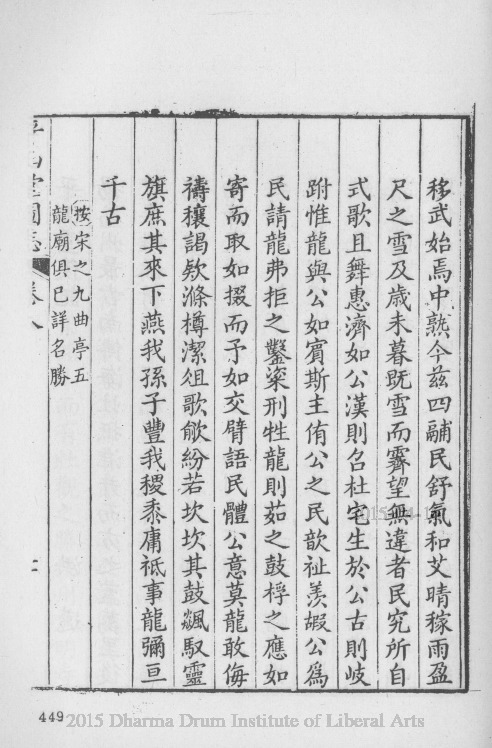 移武始焉中熟今茲四鬴民舒氣和艾晴稼雨盈
尺之雪及歲未暮旣雪而霽望無違者民究所自
式歌且舞惠濟如公漢則召杜宅生於公古則岐
跗惟龍與公如賓斯主侑公之民歆祉羨嘏公爲
民請龍弗拒之鑿粢刑牲龍則茹之鼓桴之應如
寄而取如掇而予如交臂語民體公意莫龍敢侮
禱穰謁欵滌樽潔俎歌歈紛若坎坎其鼓飆馭靈
旗庶其來下燕我孫子豐我稷黍庸祗事龍彌亘
千古
按宋之九曲亭五
龍廟俱已詳名勝
平山堂圖志 卷八
449
2015 Dharma Drum Institute of Liberal Arts